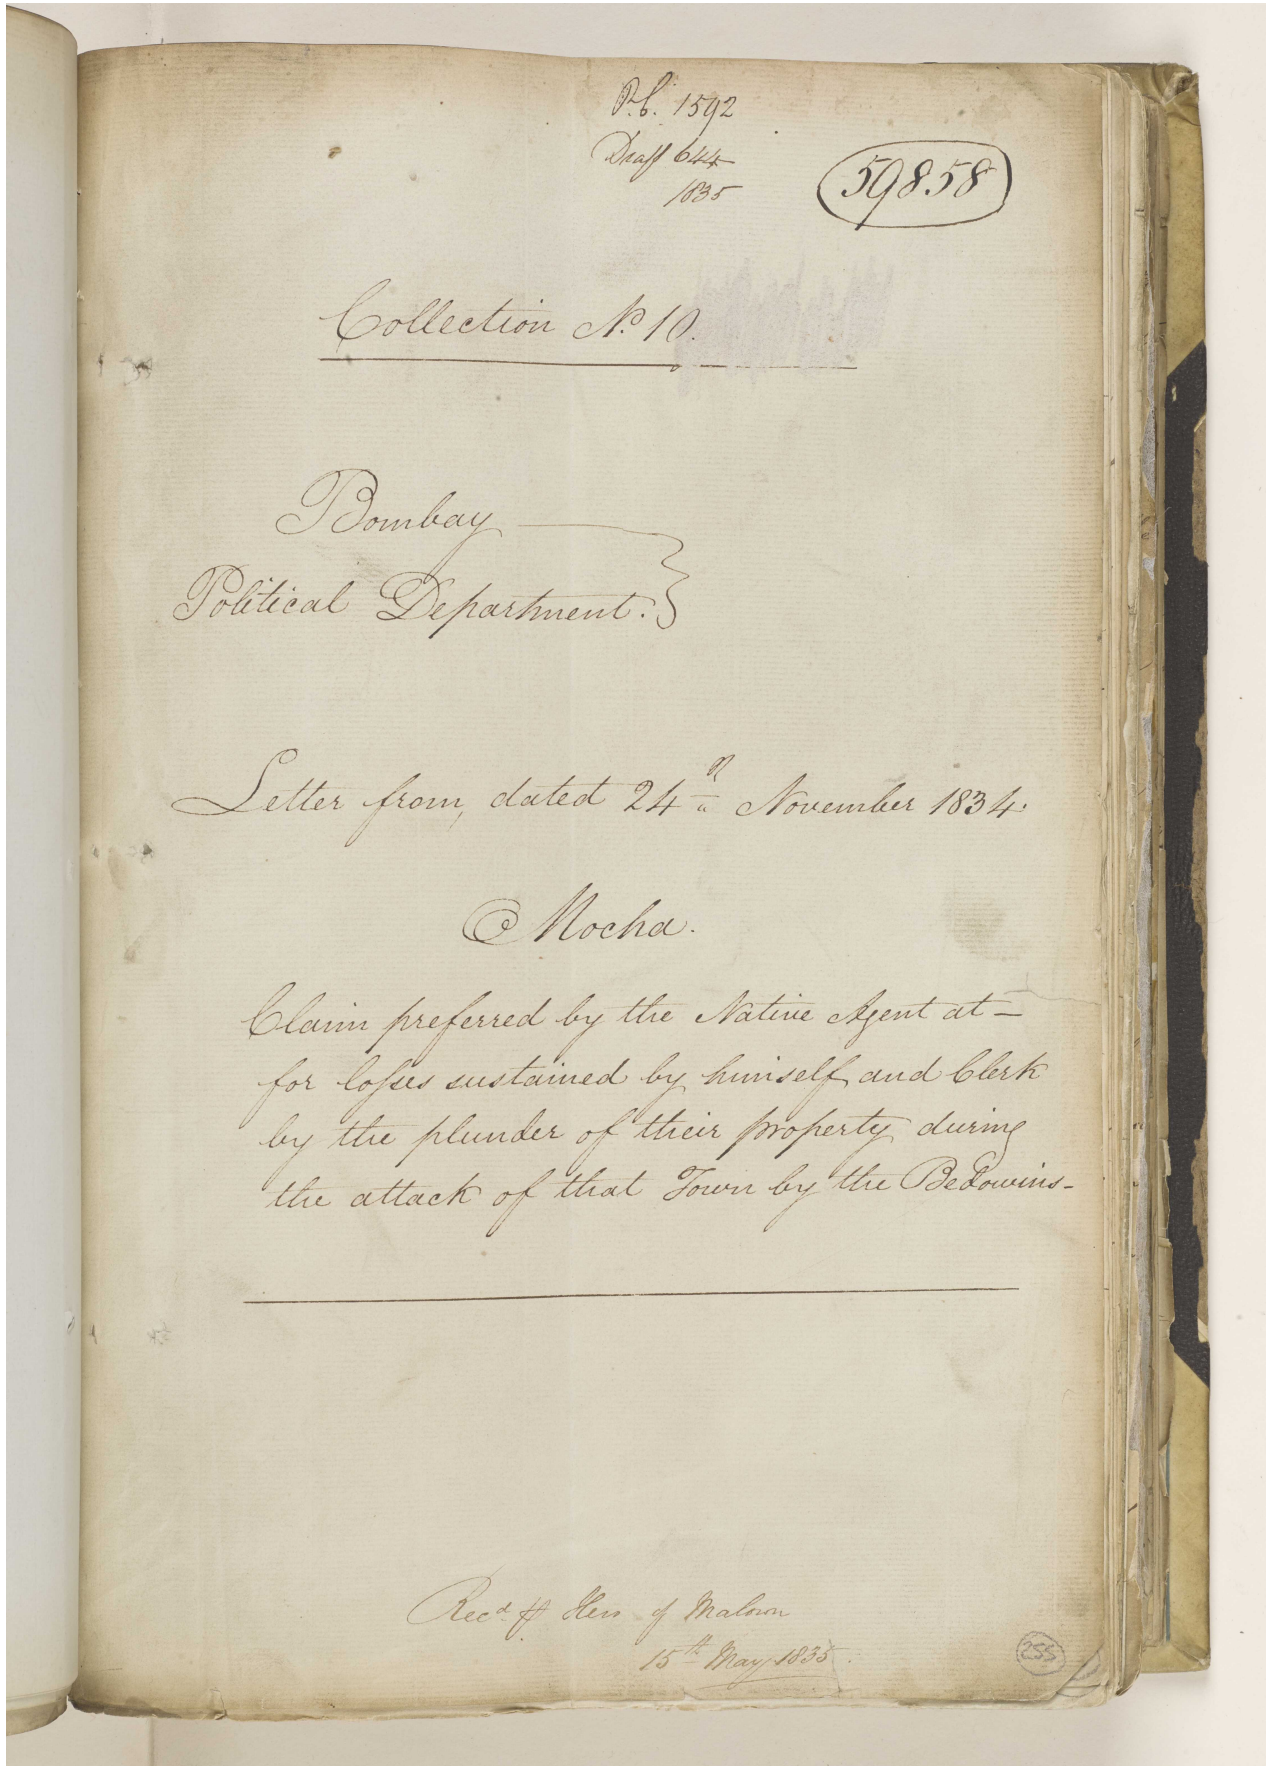 P.C. 1592
Draft 644
1835
59858
Collection No. 10.
Bombay
Political Department.
Letter from, dated 24th November 1834.
Mocha.
Claim preferred by the Native Agent at —
for losses sustained by himself and Clerk
by the plunder of their property during
the attack of that Town by the Bedowins -
Recd. Hero of Malown
15th May 1835.
255